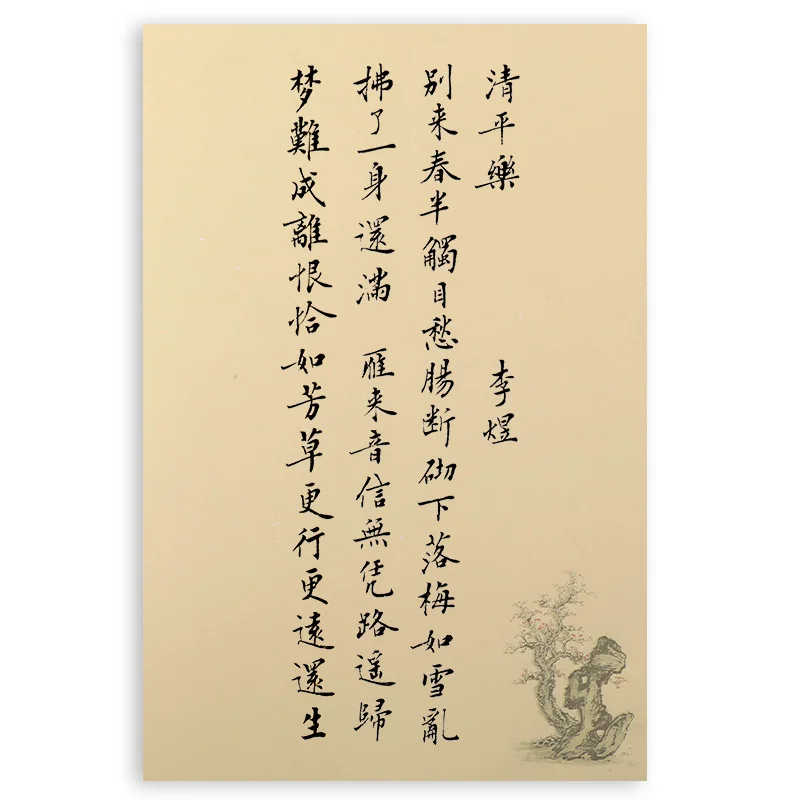 清平樂 李煜
别来春半觸目愁腸断砌下落梅如雪亂
拂了一身還滿 雁来音信無凭路遥歸
梦難成離恨恰如芳草更行更遠還生